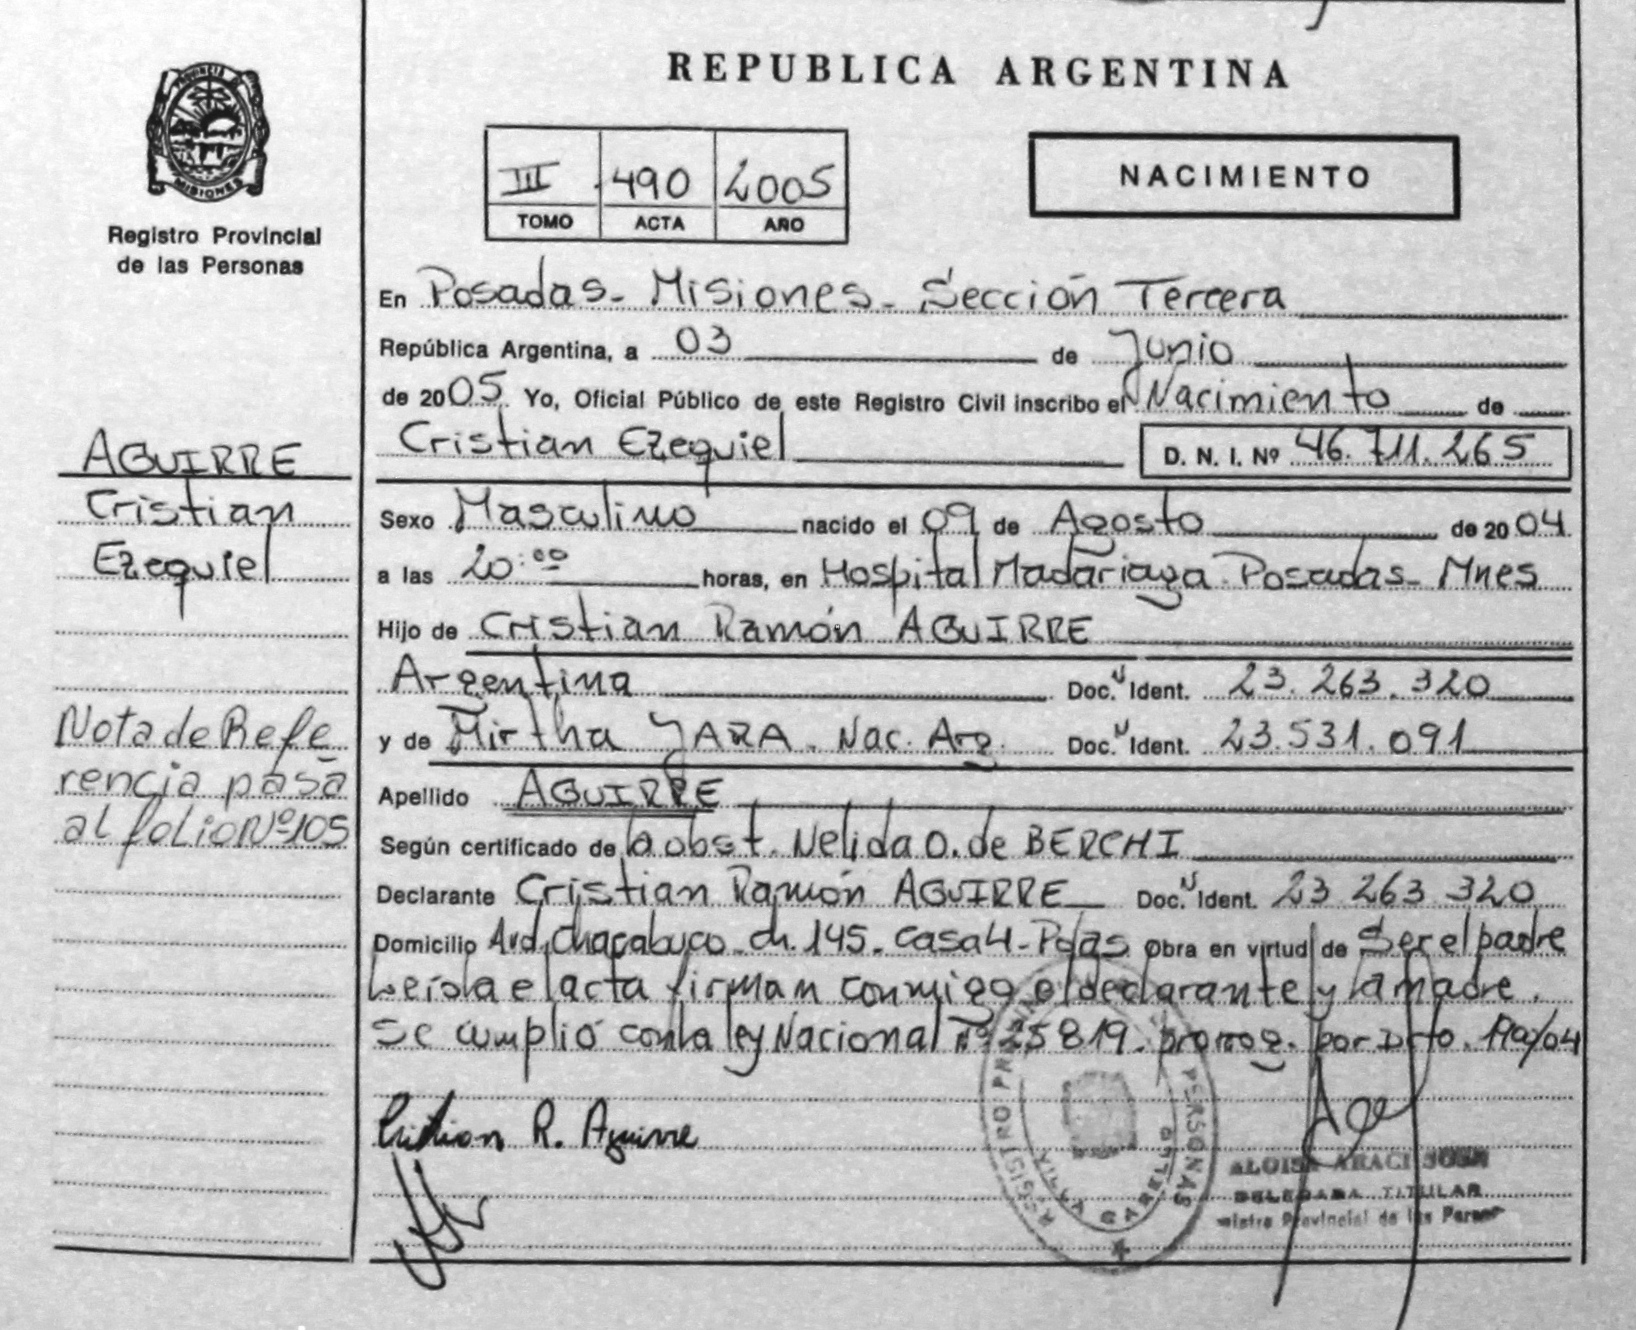 REPUBLICA ARGENTINA
MISIONES
Registro Provincial
de las Personas
III 490 2005
TOMO ACTA AÑO
NACIMIENTO
En Posadas - Misiones - Sección Tercera
República Argentina, a 03 de Junio
de 2005 Yo, Oficial Público de este Registro Civil inscribo el Nacimiento de
Cristian Ezequiel D. N. I. Nº 46.711.265
AGUIRRE
Cristian
Ezequiel
Sexo Masculino nacido el 09 de Agosto de 2004
a las 20:00 horas, en Hospital Madariaga Posadas - Mnes
Hijo de Cristian Ramón AGUIRRE
Argentina Doc. Ident. 23.263.320
y de Mirtha JARA. Nac. Arg. Doc. Ident. 23.531.091
Apellido AGUIRRE
Nota de Refe
rencia pasa
al folio Nº 105
Según certificado de la obst. Nelida O. de BERCHI
Declarante Cristian Ramón AGUIRRE Doc. Ident. 23 263 320
Domicilio Avd. Chacabuco - ch. 145 - casa 4 - Pdas Obra en virtud de Ser el padre
Leída el acta firman conmigo el declarante y la madre.
Se cumplió con la ley Nacional Nº 25819. prorrog. por Dto.
Cristian R. Aguirre
PERSONAS
DELEGADA TITULAR
Provincial de las